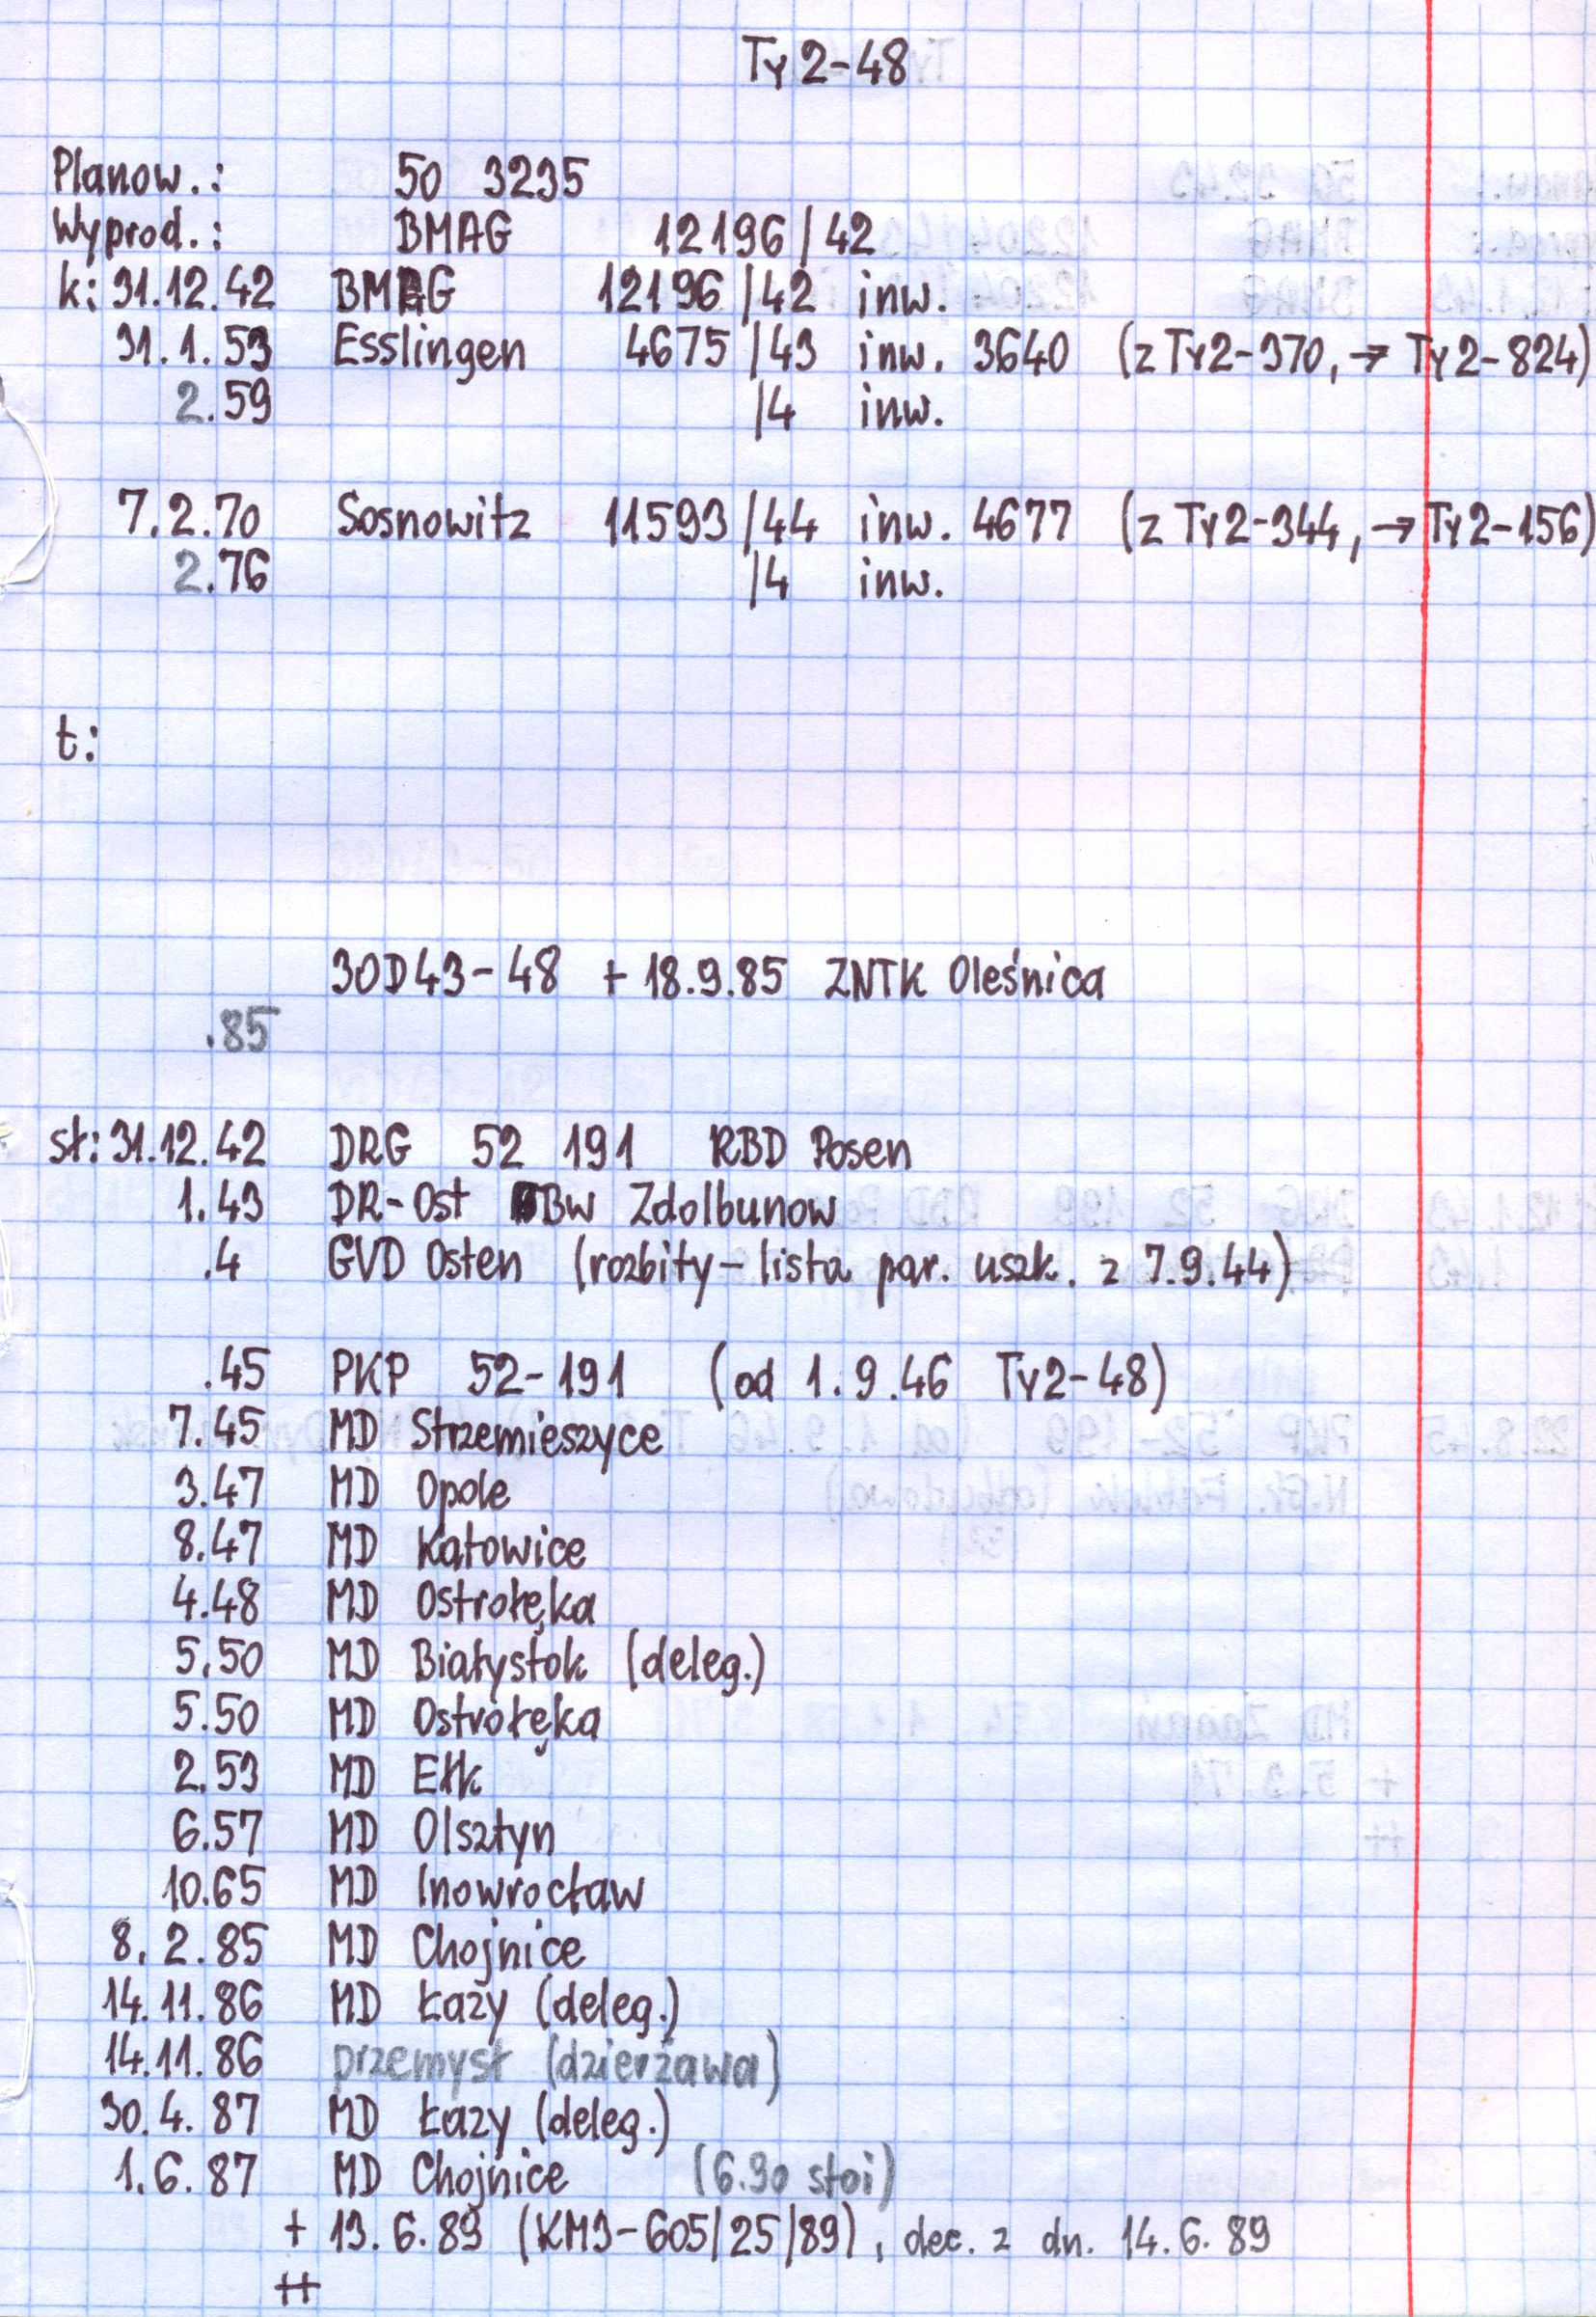 Ty2-48
Planow.: 50 3235
Wyprod.: BMAG 12196/42
k: 31.12.42 BMAG 12196/42 inw.
31.1.53 Esslingen 4675/43 inw. 3640 (z Ty2-370, → Ty2-824)
2.59 /4 inw.
7.2.70 Sosnowitz 11593/44 inw. 4677 (z Ty2-344, → Ty2-156)
2.76 /4 inw.
t:
30D43-48 + 18.9.85 ZNTK Oleśnica
.85
st: 31.12.42 DRG 52 191 RBD Posen
1.43 DR-Ost Bw Zdolbunow
.4 GVD Osten (rozbity - lista par. uszk. z 7.9.44)
.45 PKP 52-191 (od 1.9.46 Ty2-48)
7.45 MD Strzemieszyce
3.47 MD Opole
8.47 MD Katowice
4.48 MD Ostrołęka
5.50 MD Białystok (deleg.)
5.50 MD Ostrołęka
2.53 MD Ełk
6.57 MD Olsztyn
10.65 MD Inowrocław
8.2.85 MD Chojnice
14.11.86 MD Łazy (deleg.)
14.11.86 przemysł (dzierżawa)
30.4.87 MD Łazy (deleg.)
1.6.87 MD Chojnice (6.90 stoi)
+ 13.6.89 (KM3-605/25/89), dec. z dn. 14.6.89
++